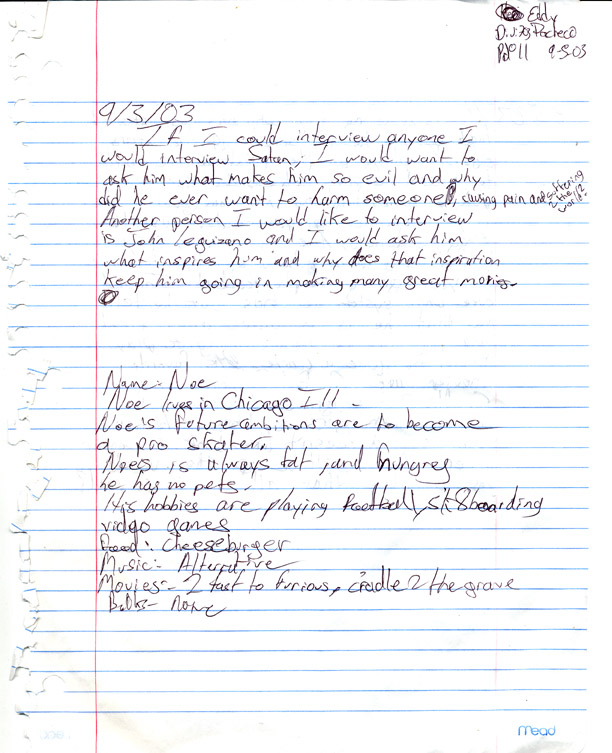 Eddy
D.J. Pacheco
Pd° 11 9-3-03
9/3/03
If I could interview anyone I
would interview Satan, I would want to
ask him what makes him so evil and why
did he ever want to harm someone, causing pain and suffering
2 the world?
Another person I would like to interview
is John Leguizano and I would ask him
what inspires him and why does that inspiration
keep him going in making many great movies.
Name:- Noe
Noe lives in Chicago Ill.
Noe's future ambitions are to become
a pro skater.
Noe is always fat, and hungrey
he has no pets.
His hobbies are playing football, sk8boarding
video games
Food: Cheeseburger
Music:- Alternative
Movies:- 2 fast to furious, cradle 2 the grave
Books- none
Mead